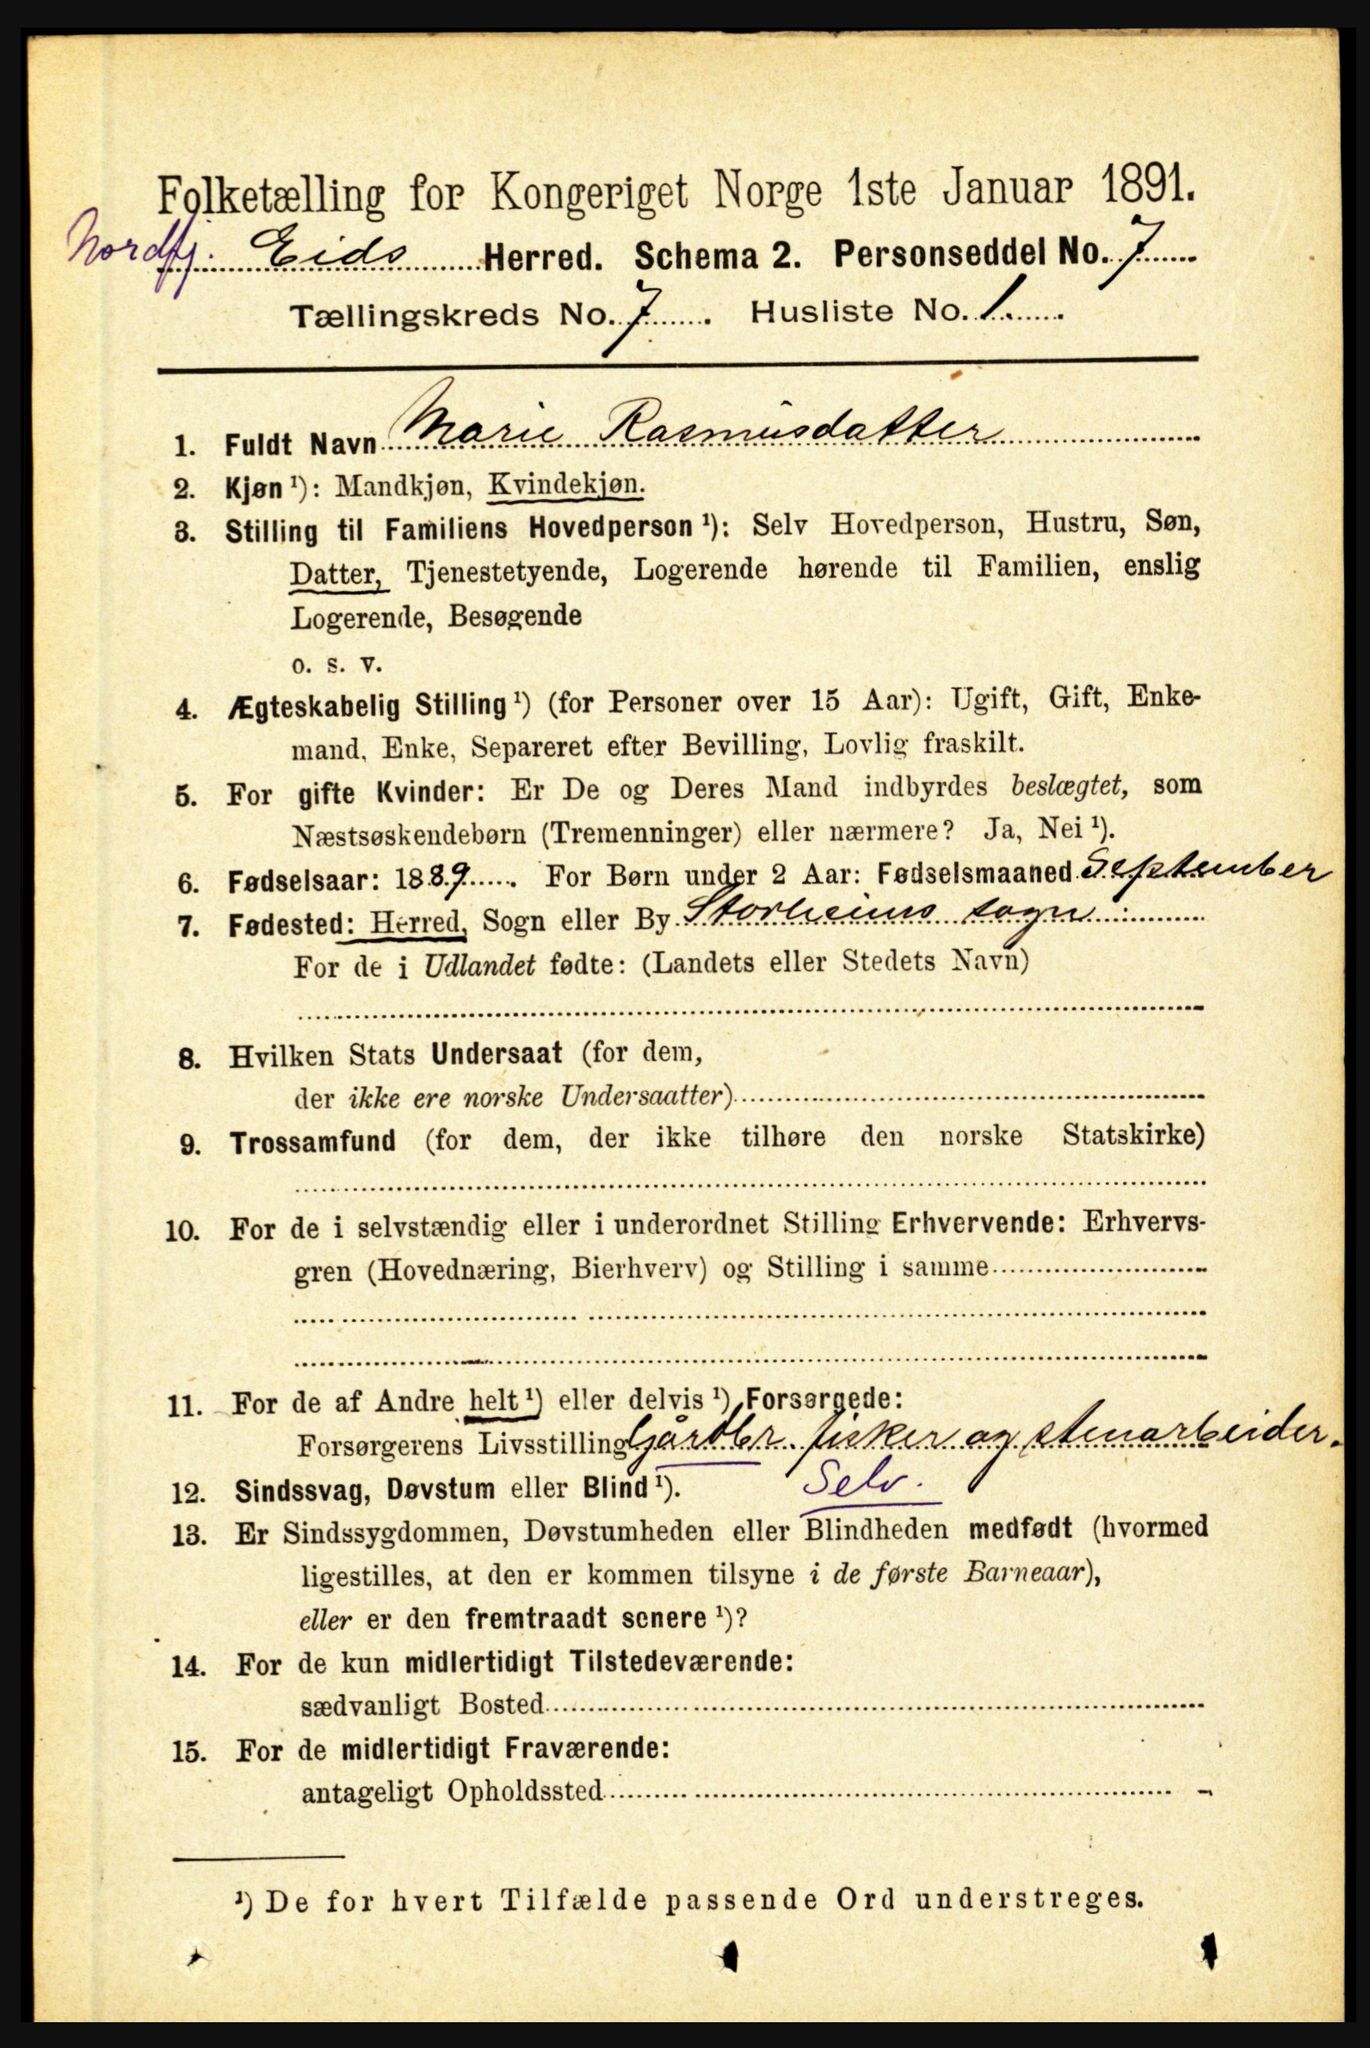 Folketælling for Kongeriget Norge 1ste Januar 1891.
Nordfj. Eids Herred. Schema 2. Personseddel No. 7
Tællingskreds No. 7. Husliste No. 1.
1. Fuldt Navn Marie Rasmusdatter
2. Kjøn ¹): Mandkjøn, Kvindekjøn.
3. Stilling til Familiens Hovedperson ¹): Selv Hovedperson, Hustru, Søn,
Datter, Tjenestetyende, Logerende hørende til Familien, enslig
Logerende, Besøgende
o. s. v.
4. Ægteskabelig Stilling ¹) (for Personer over 15 Aar): Ugift, Gift, Enke-
mand, Enke, Separeret efter Bevilling, Lovlig fraskilt.
5. For gifte Kvinder: Er De og Deres Mand indbyrdes beslægtet, som
Næstsøskendebørn (Tremenninger) eller nærmere? Ja, Nei ¹).
6. Fødselsaar: 1889. For Børn under 2 Aar: Fødselsmaaned September
7. Fødested: Herred, Sogn eller By Storheims sogn
For de i Udlandet fødte: (Landets eller Stedets Navn)
8. Hvilken Stats Undersaat (for dem,
der ikke ere norske Undersaatter)
9. Trossamfund (for dem, der ikke tilhøre den norske Statskirke)
10. For de i selvstændig eller i underordnet Stilling Erhvervende: Erhvervs-
gren (Hovednæring, Bierhverv) og Stilling i samme
11. For de af Andre helt ¹) eller delvis ¹) Forsørgede:
Forsørgerens Livsstilling Gårdbr. fisker og stenarbeider.
12. Sindssvag, Døvstum eller Blind ¹). Selv.
13. Er Sindssygdommen, Døvstumheden eller Blindheden medfødt (hvormed
ligestilles, at den er kommen tilsyne i de første Barneaar),
eller er den fremtraadt senere ¹)?
14. For de kun midlertidigt Tilstedeværende:
sædvanligt Bosted
15. For de midlertidigt Fraværende:
antageligt Opholdssted
¹) De for hvert Tilfælde passende Ord understreges.